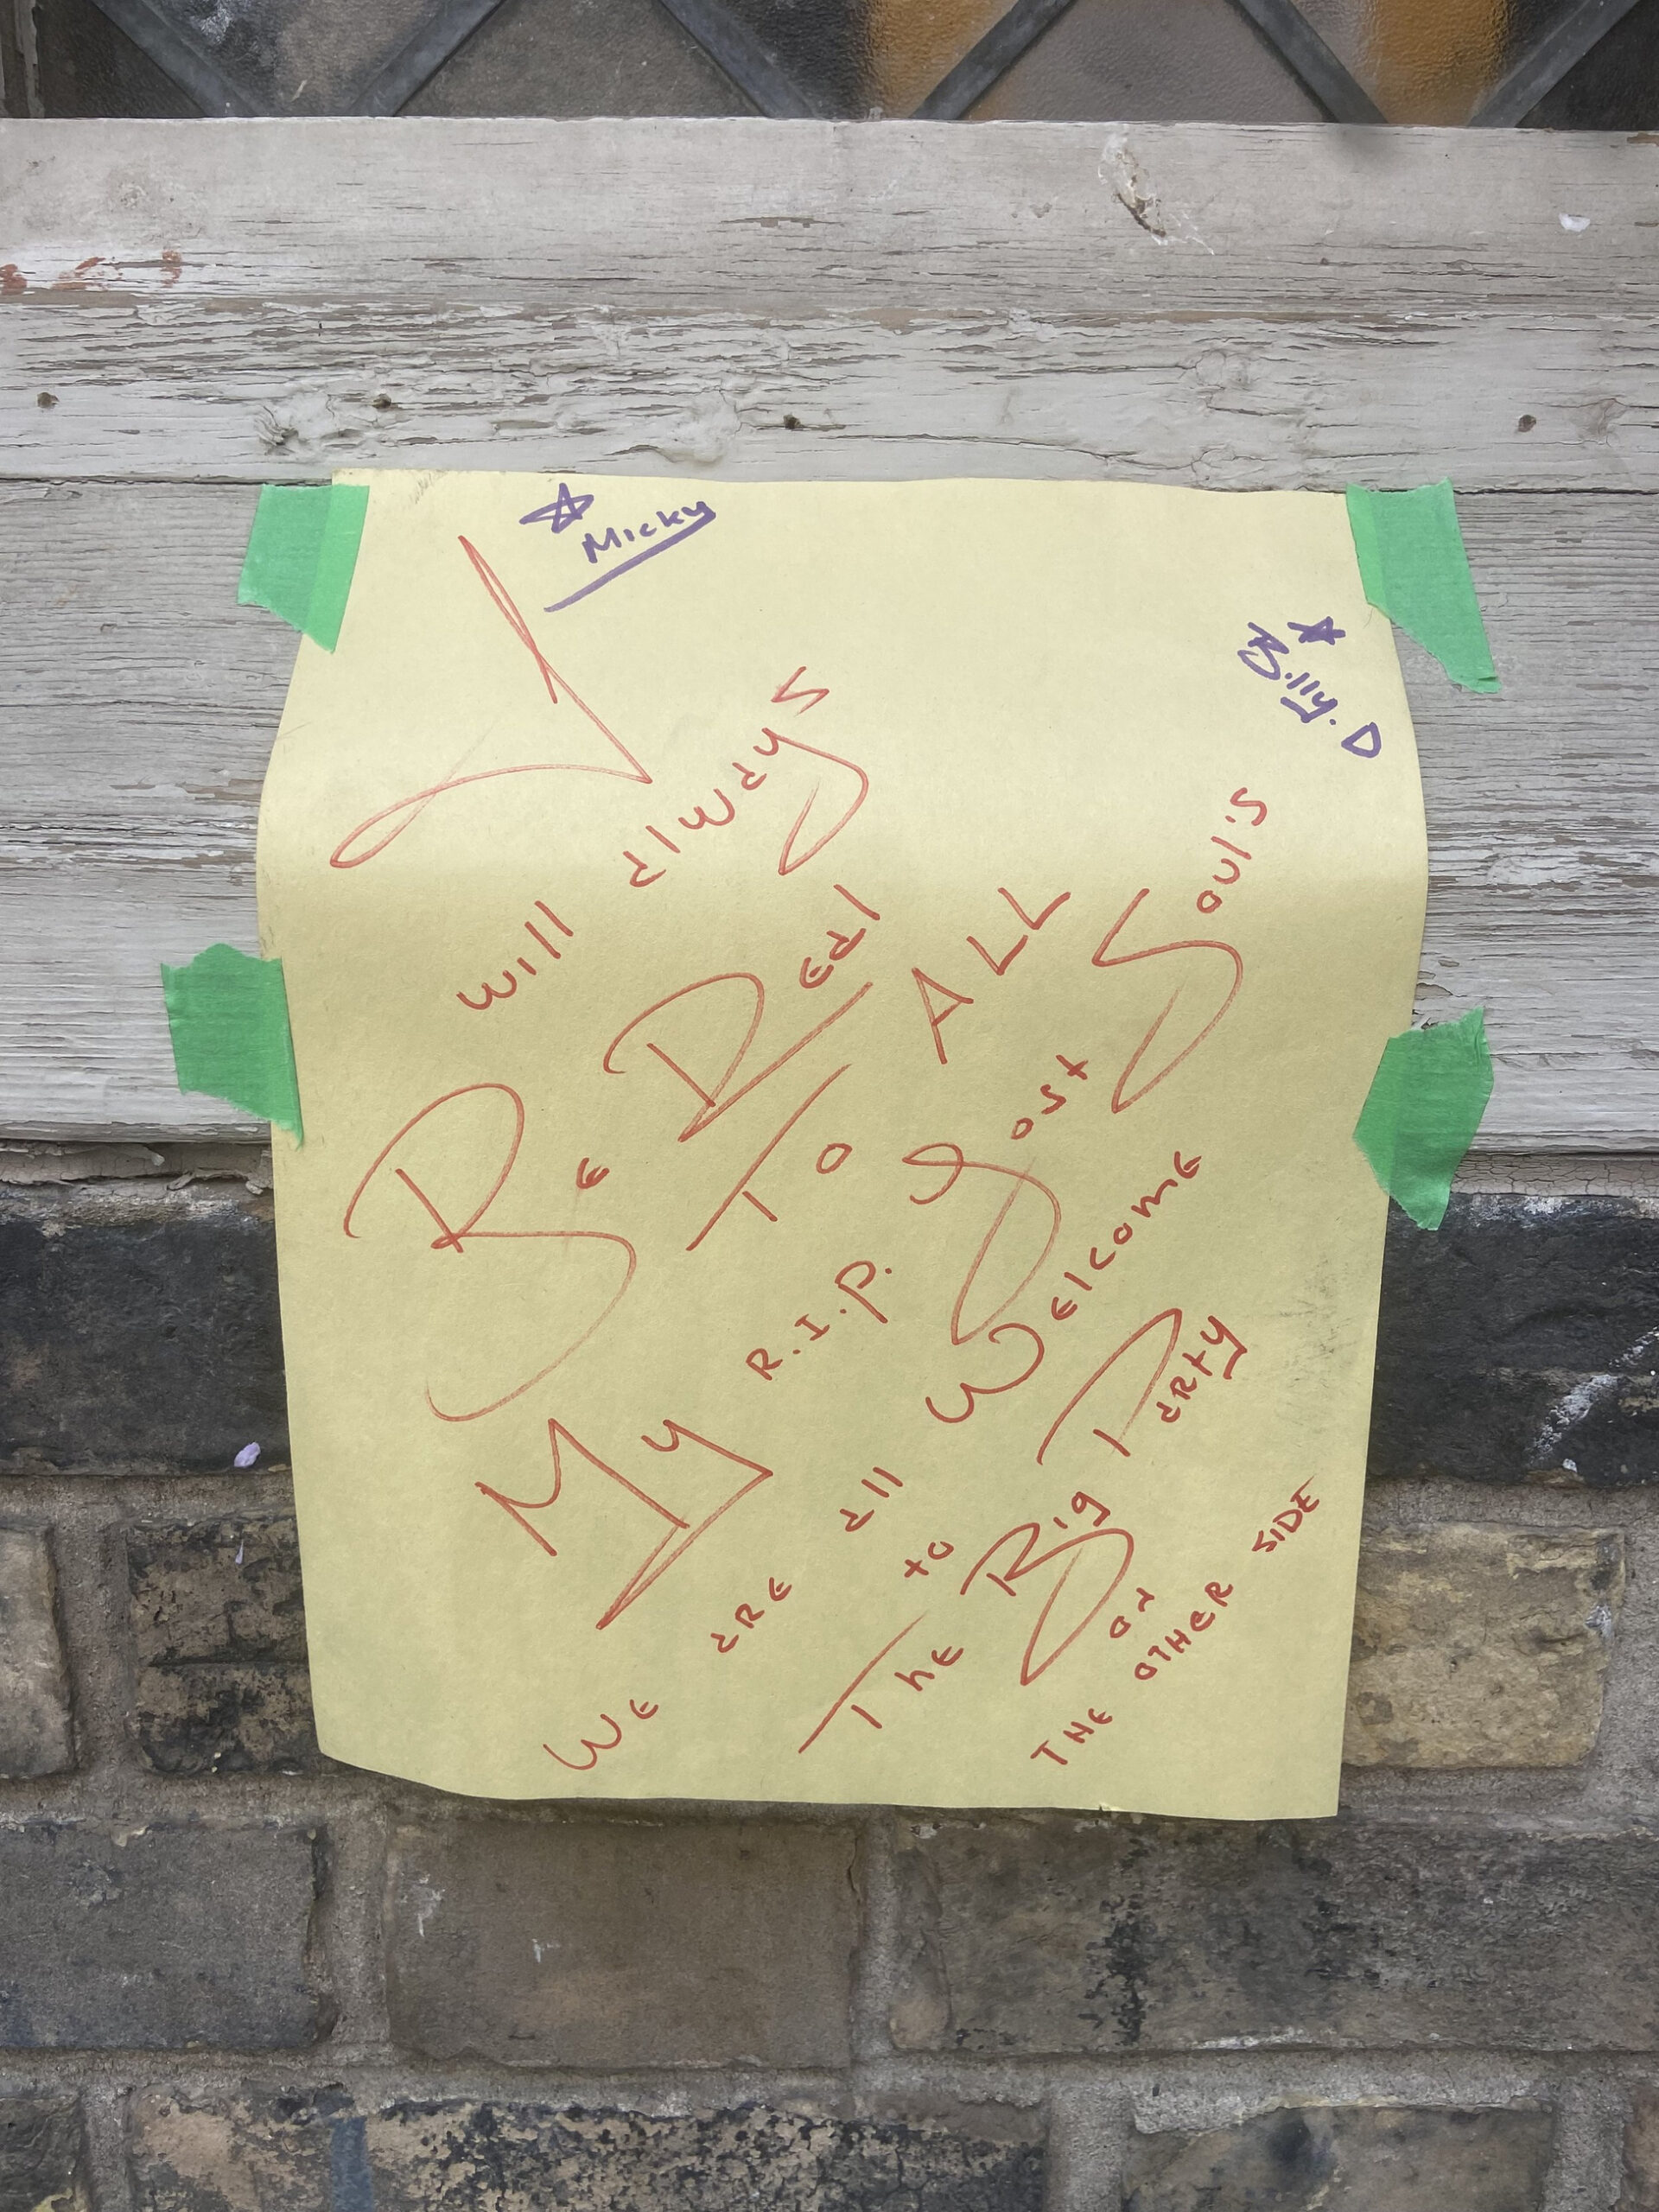 Micky
Billy.D
I will always
Be Real
To ALL
My R.I.P. Lost Soul's
We are all Welcome
to
The Big Party
on
THE OTHER SIDE